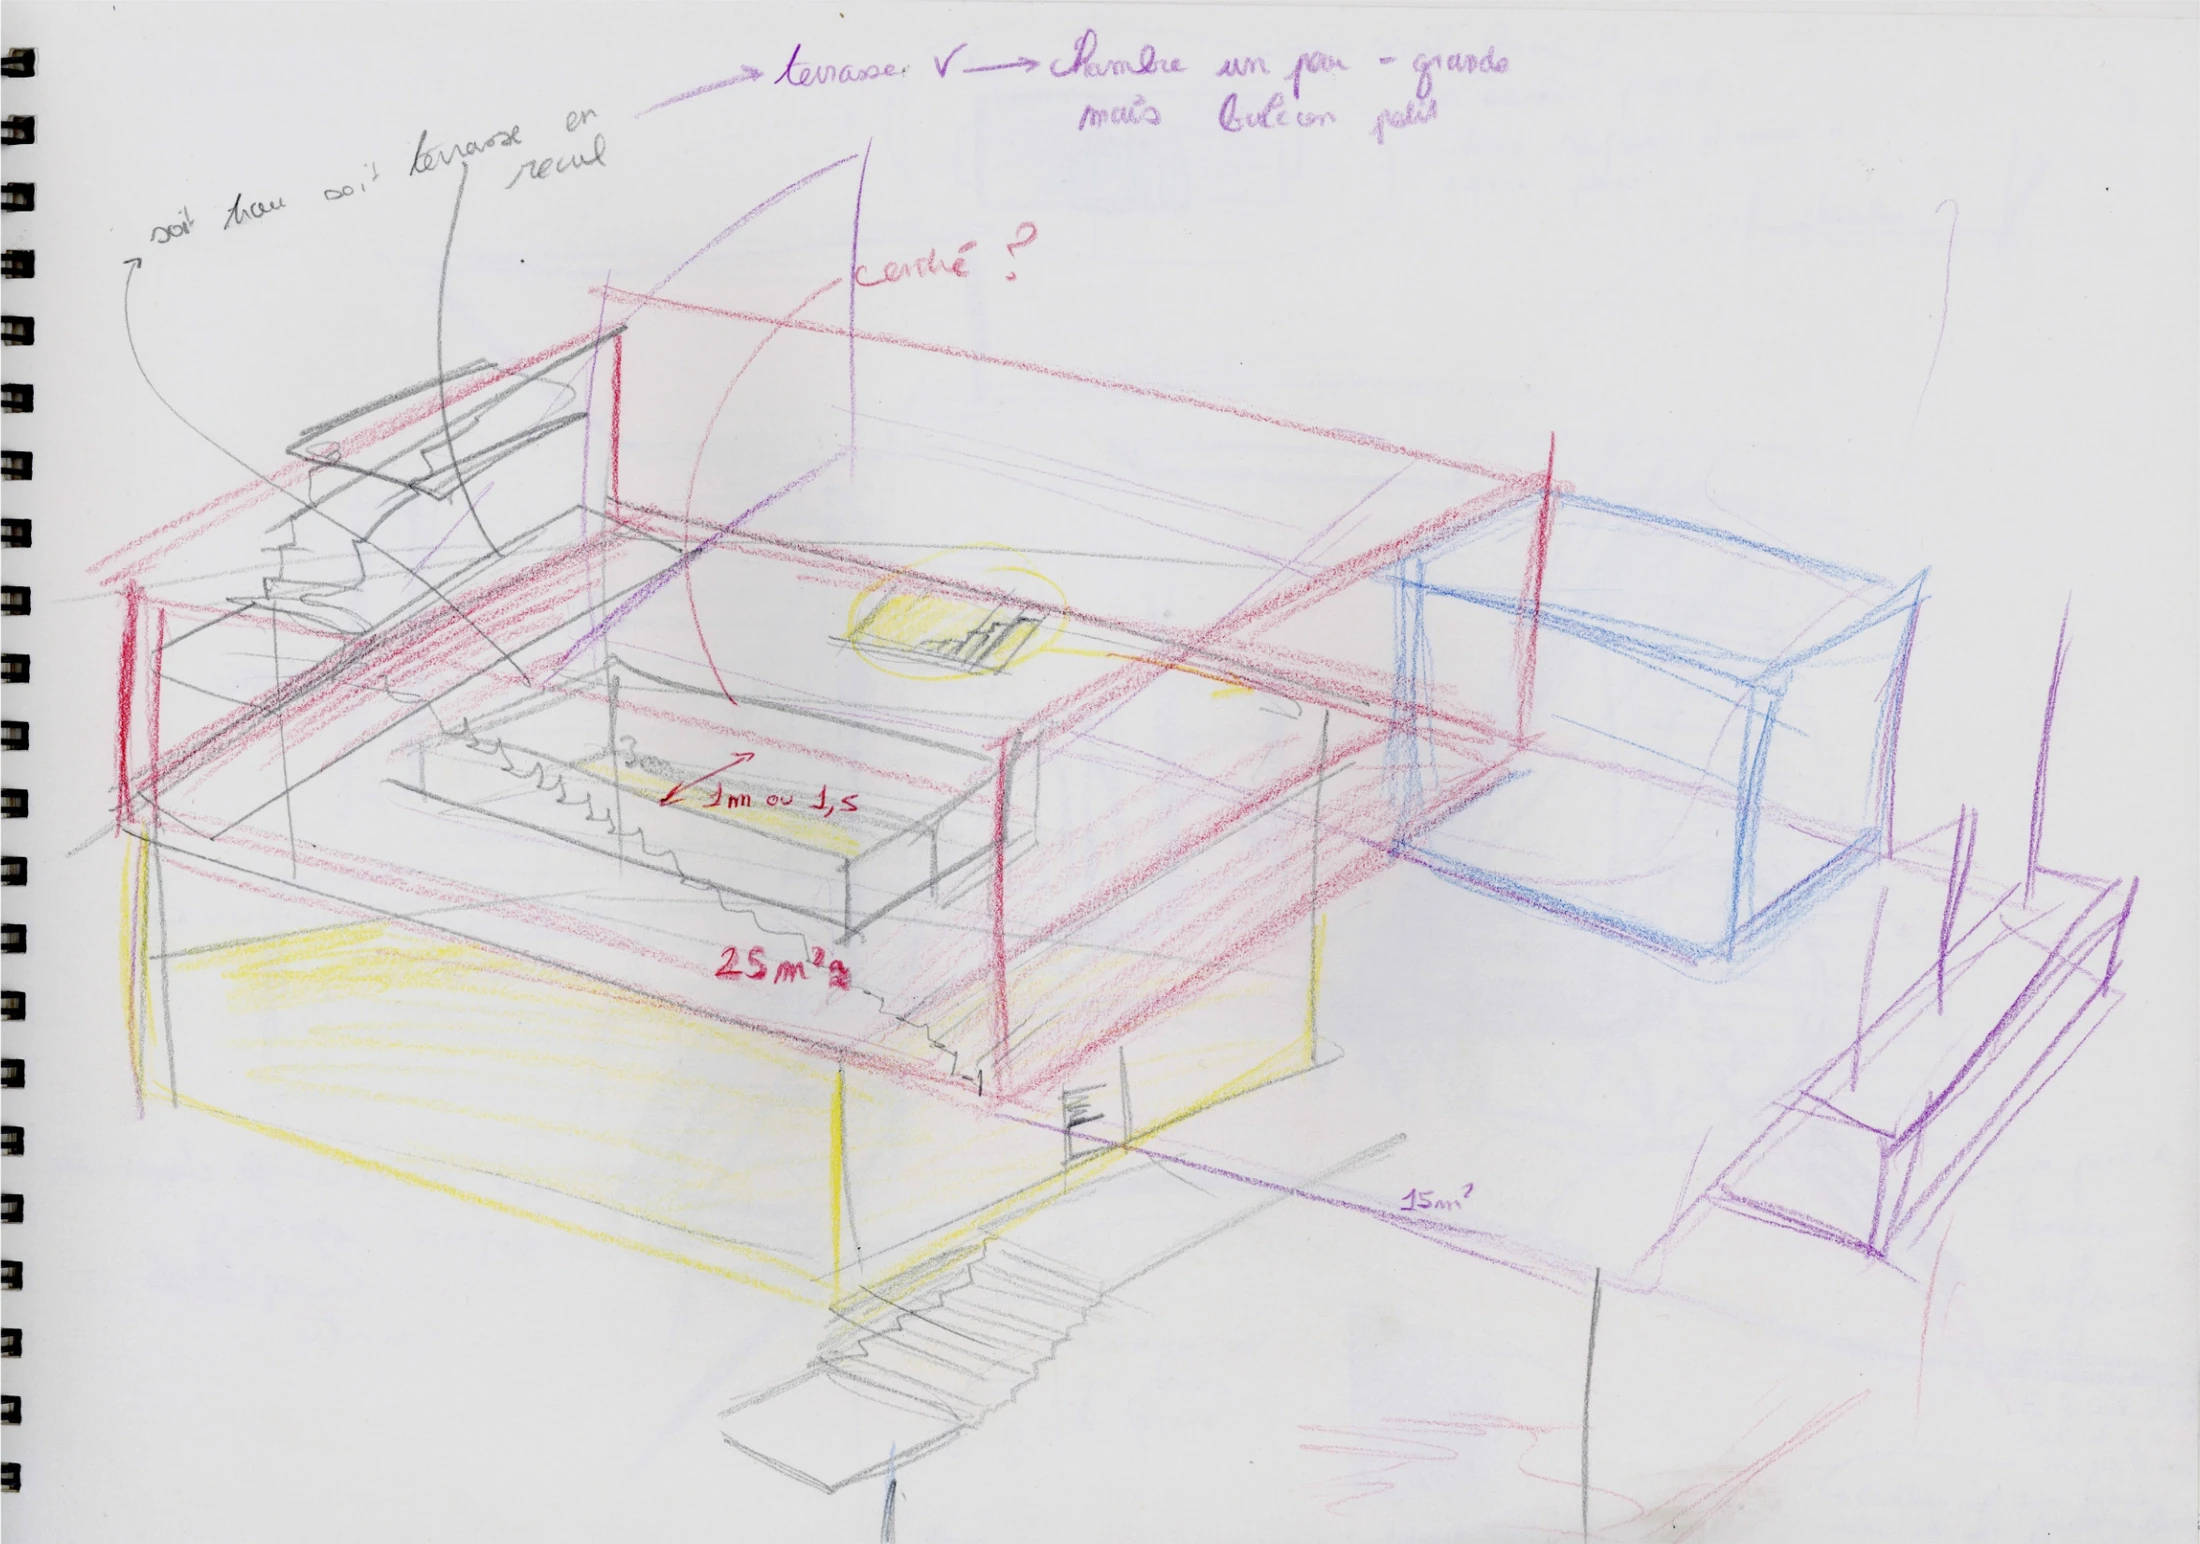 terrasse V → Chambre un peu - grande
mais balcon petit
soit trou soit terrasse en
recul
centré ?
3m
1m ou 1,5
25m²
15m²